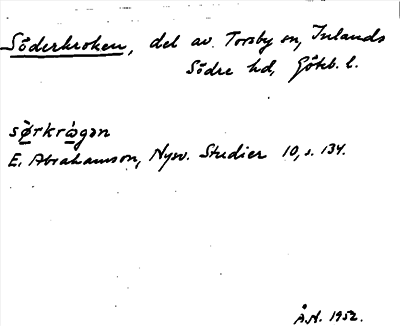 Söderkroken, del av Torsby sn, Inlands
Södre hd, Göteb. l.
sø̀rkrȯ̀gən
E. Abrahamson, Nysv. Studier 10, s. 134.
Å.H. 1952.